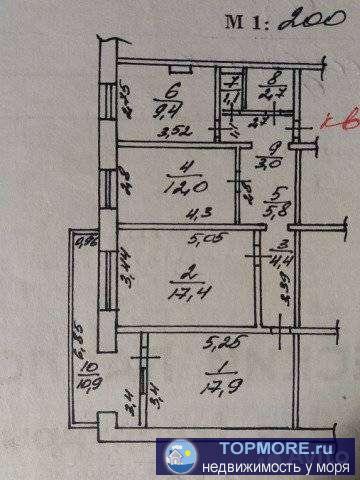 М 1: 200
6
9,4
2,75
3,52
7
1,1
8
2,7
2,7
кв
9
3,0
4
12,0
2,8
4,3
2,8
5
5,8
5,05
3
4,4
0,96
3,44
2
17,4
3,39
6,85
5,25
10
10,9
1
17,9
3,4
3,4
TOPMORE.ru
недвижимость у моря
Avito